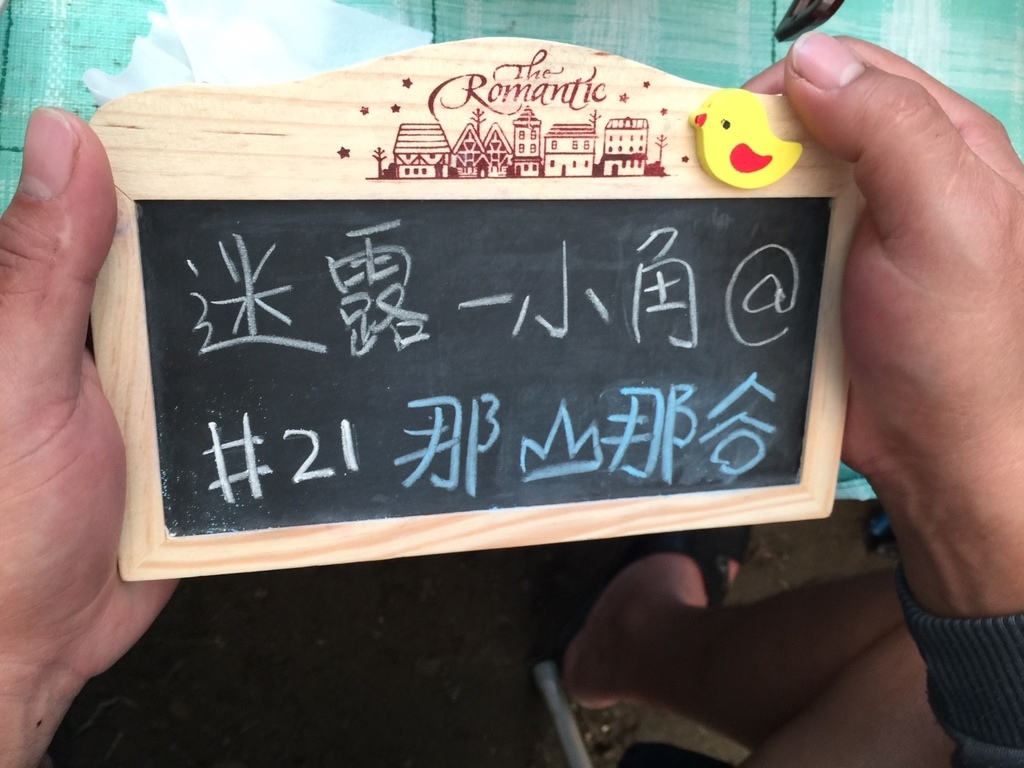 The
Romantic
迷露一小角@
#21 那山那谷